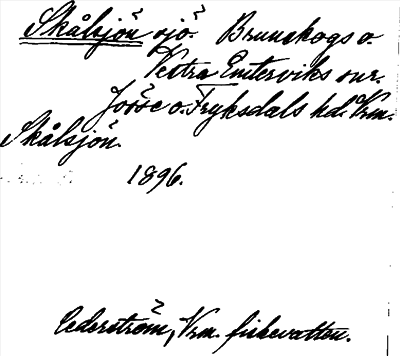 Skålsjön sjö Brunskogs o.
Vestra Emterviks snr.
Jösse o. Fryksdals hd. Vrm.
Skålsjön.
1896.
Cederström, Vrm. fiskevatten.